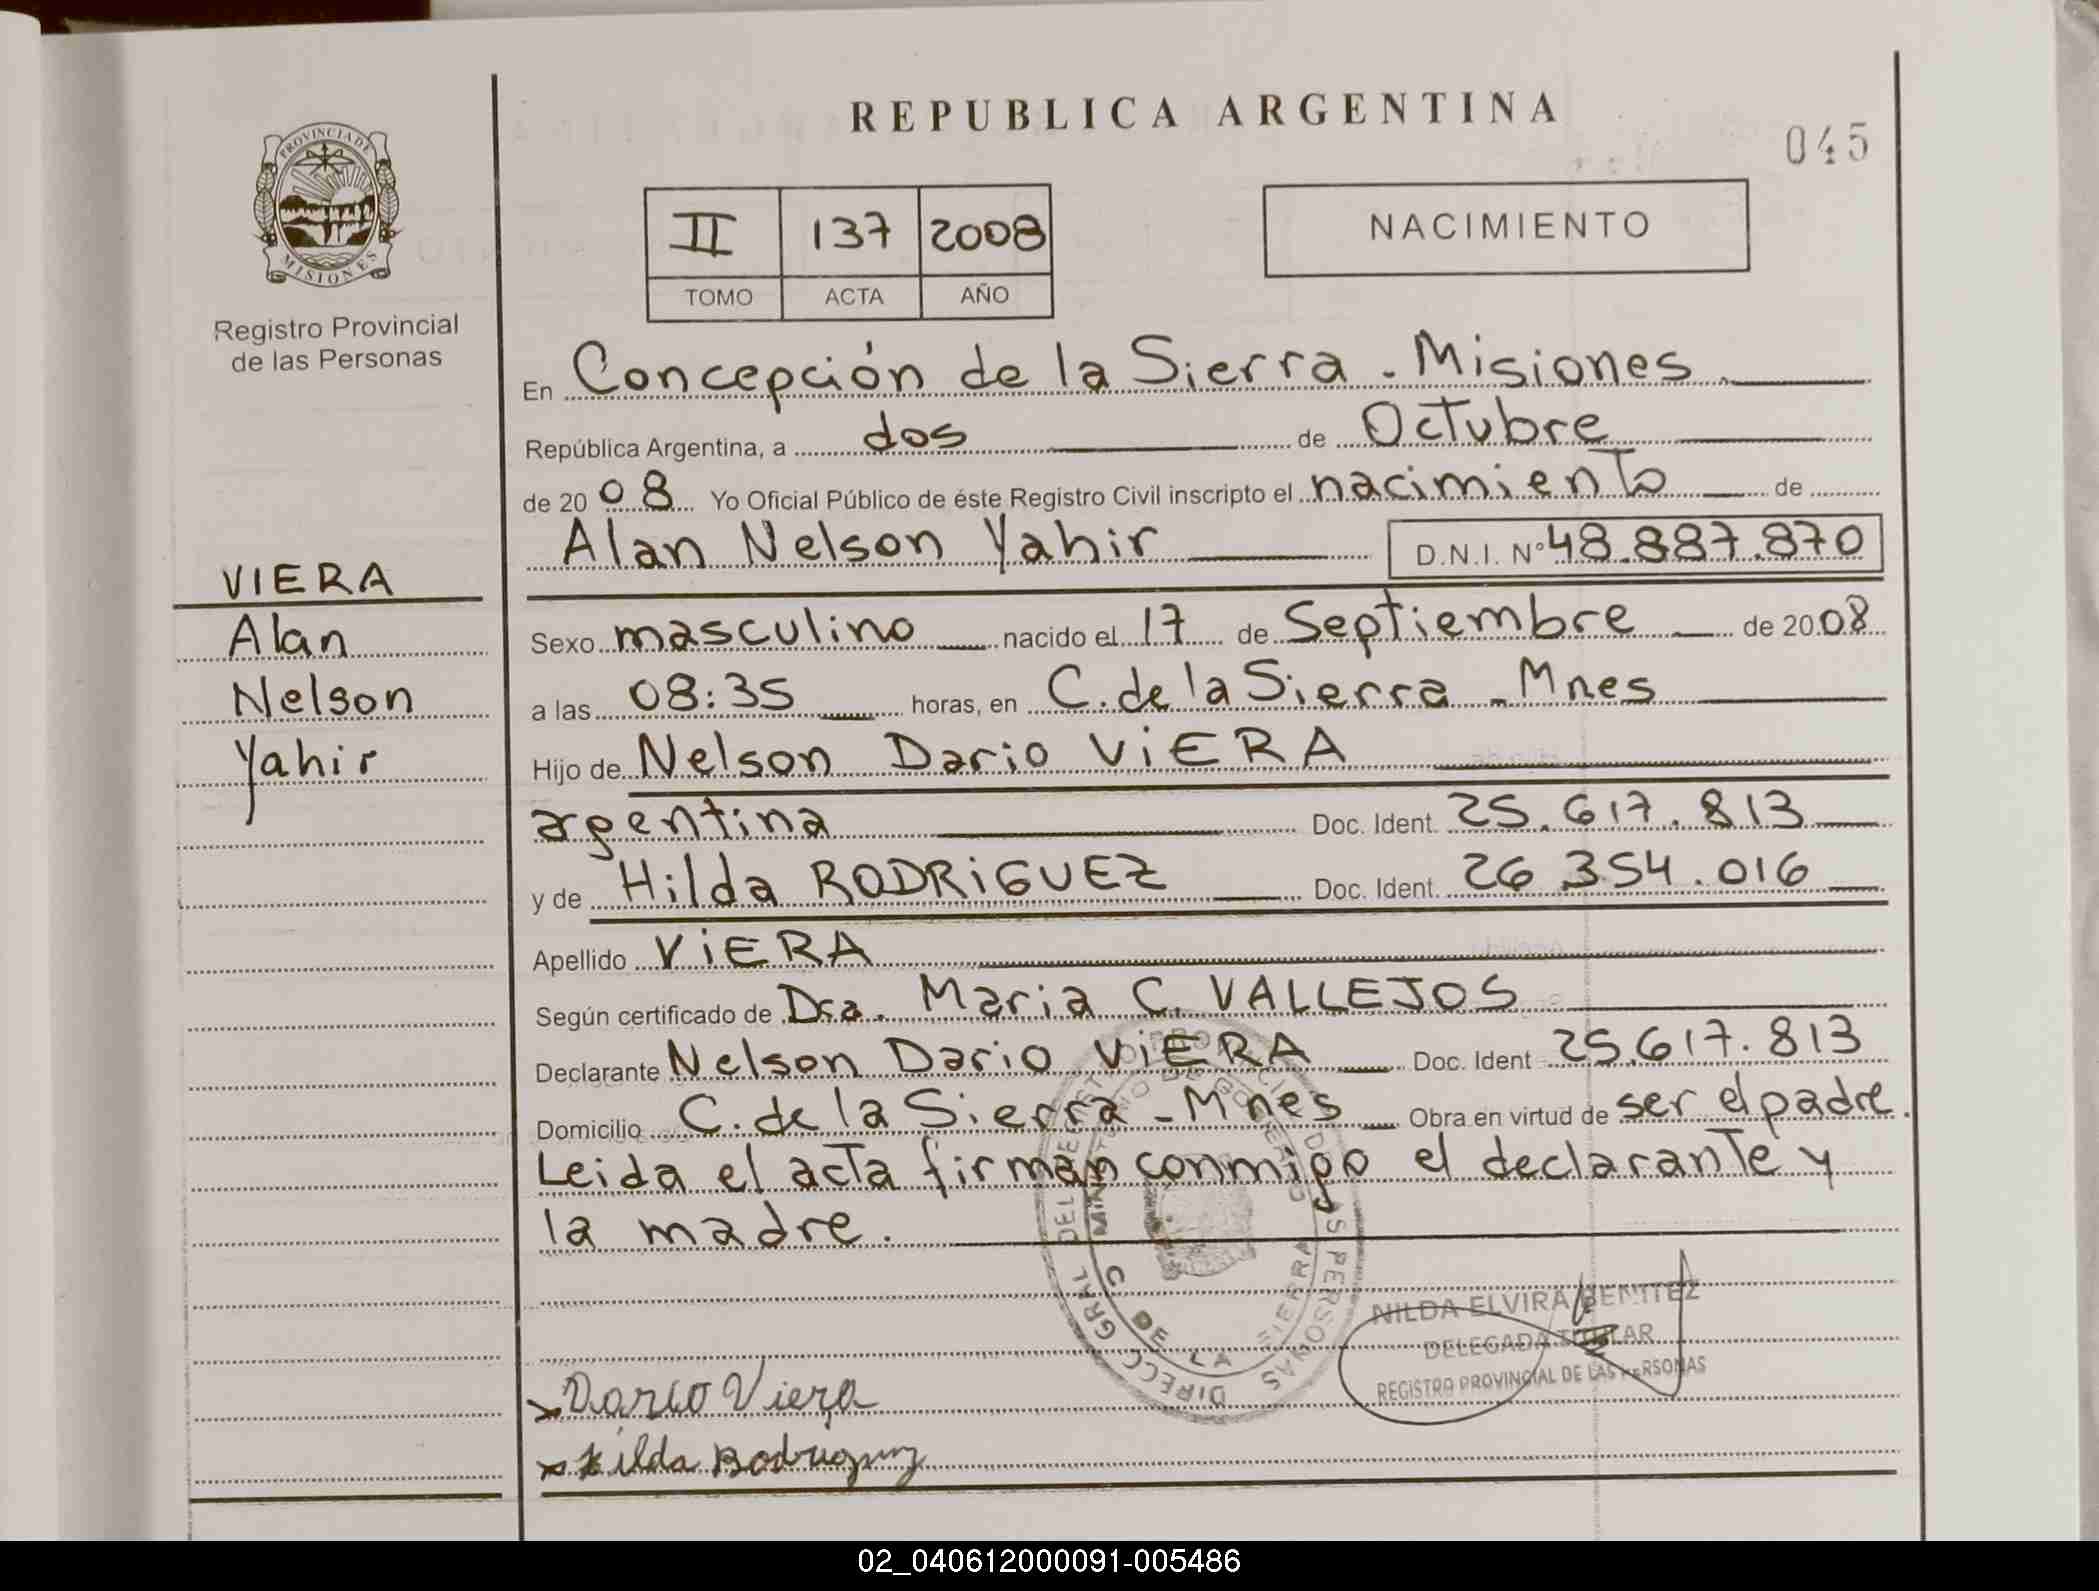 REPUBLICA ARGENTINA
045
PROVINCIA DE
MISIONES
Registro Provincial
de las Personas
II 137 2008
TOMO ACTA AÑO
NACIMIENTO
En Concepción de la Sierra - Misiones
República Argentina, a dos de Octubre
de 2008 Yo Oficial Público de éste Registro Civil inscripto el nacimiento de
Alan Nelson Yahir D.N.I. Nº 48.887.870
VIERA
Alan
Nelson
Yahir
Sexo masculino nacido el 17 de Septiembre de 2008
a las 08:35 horas, en C. de la Sierra - Mnes
Hijo de Nelson Dario ViERA
argentina Doc. Ident. 25.617.813
y de Hilda RODRiGUEZ Doc. Ident. 26 354.016
Apellido ViERA
Según certificado de Dra. Maria C. VALLEJOS
Declarante Nelson Dario ViERA Doc. Ident 25.617.813
Domicilio C. de la Sierra - Mnes Obra en virtud de ser el padre.
Leida el acta firman conmigo el declarante y
la madre.
DIRECC GRAL DEL REGIST PROVINCIAL DE LAS PERSONAS
MINISTERIO DE GOBIERNO
C DE LA SIERRA
NILDA ELVIRA BENITEZ
DELEGADA TITULAR
REGISTRO PROVINCIAL DE LAS PERSONAS
Dario Viera
Hilda Rodriguez
02_040612000091-005486